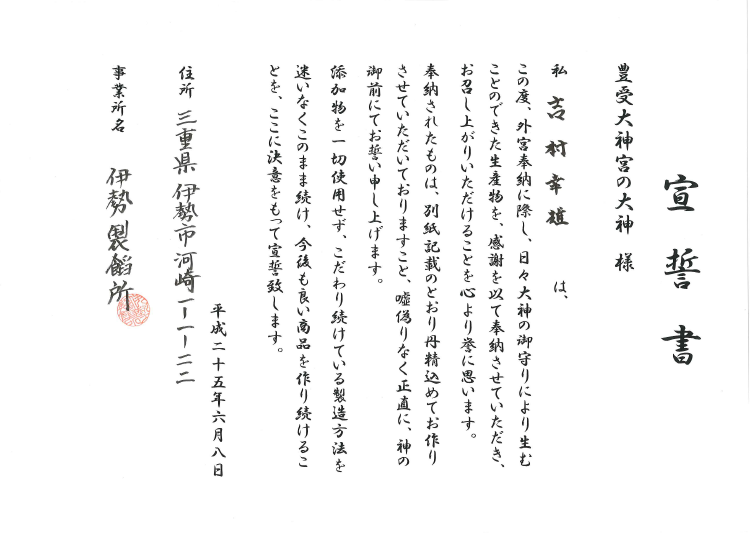 宣誓書
豊受大神宮の大神 様
私 吉村幸雄 は、
この度、外宮奉納に際し、日々大神の御守りにより生む
ことのできた生産物を、感謝を以て奉納させていただき、
お召し上がりいただけることを心より誉に思います。
奉納されたものは、別紙記載のとおり丹精込めてお作り
させていただいておりますこと、嘘偽りなく正直に、神の
御前にてお誓い申し上げます。
添加物を一切使用せず、こだわり続けている製造方法を
迷いなくこのまま続け、今後も良い商品を作り続けるこ
とを、ここに決意をもって宣誓致します。
平成二十五年六月八日
住所 三重県伊勢市河崎一ー一ー二二
事業所名 伊勢製餡所